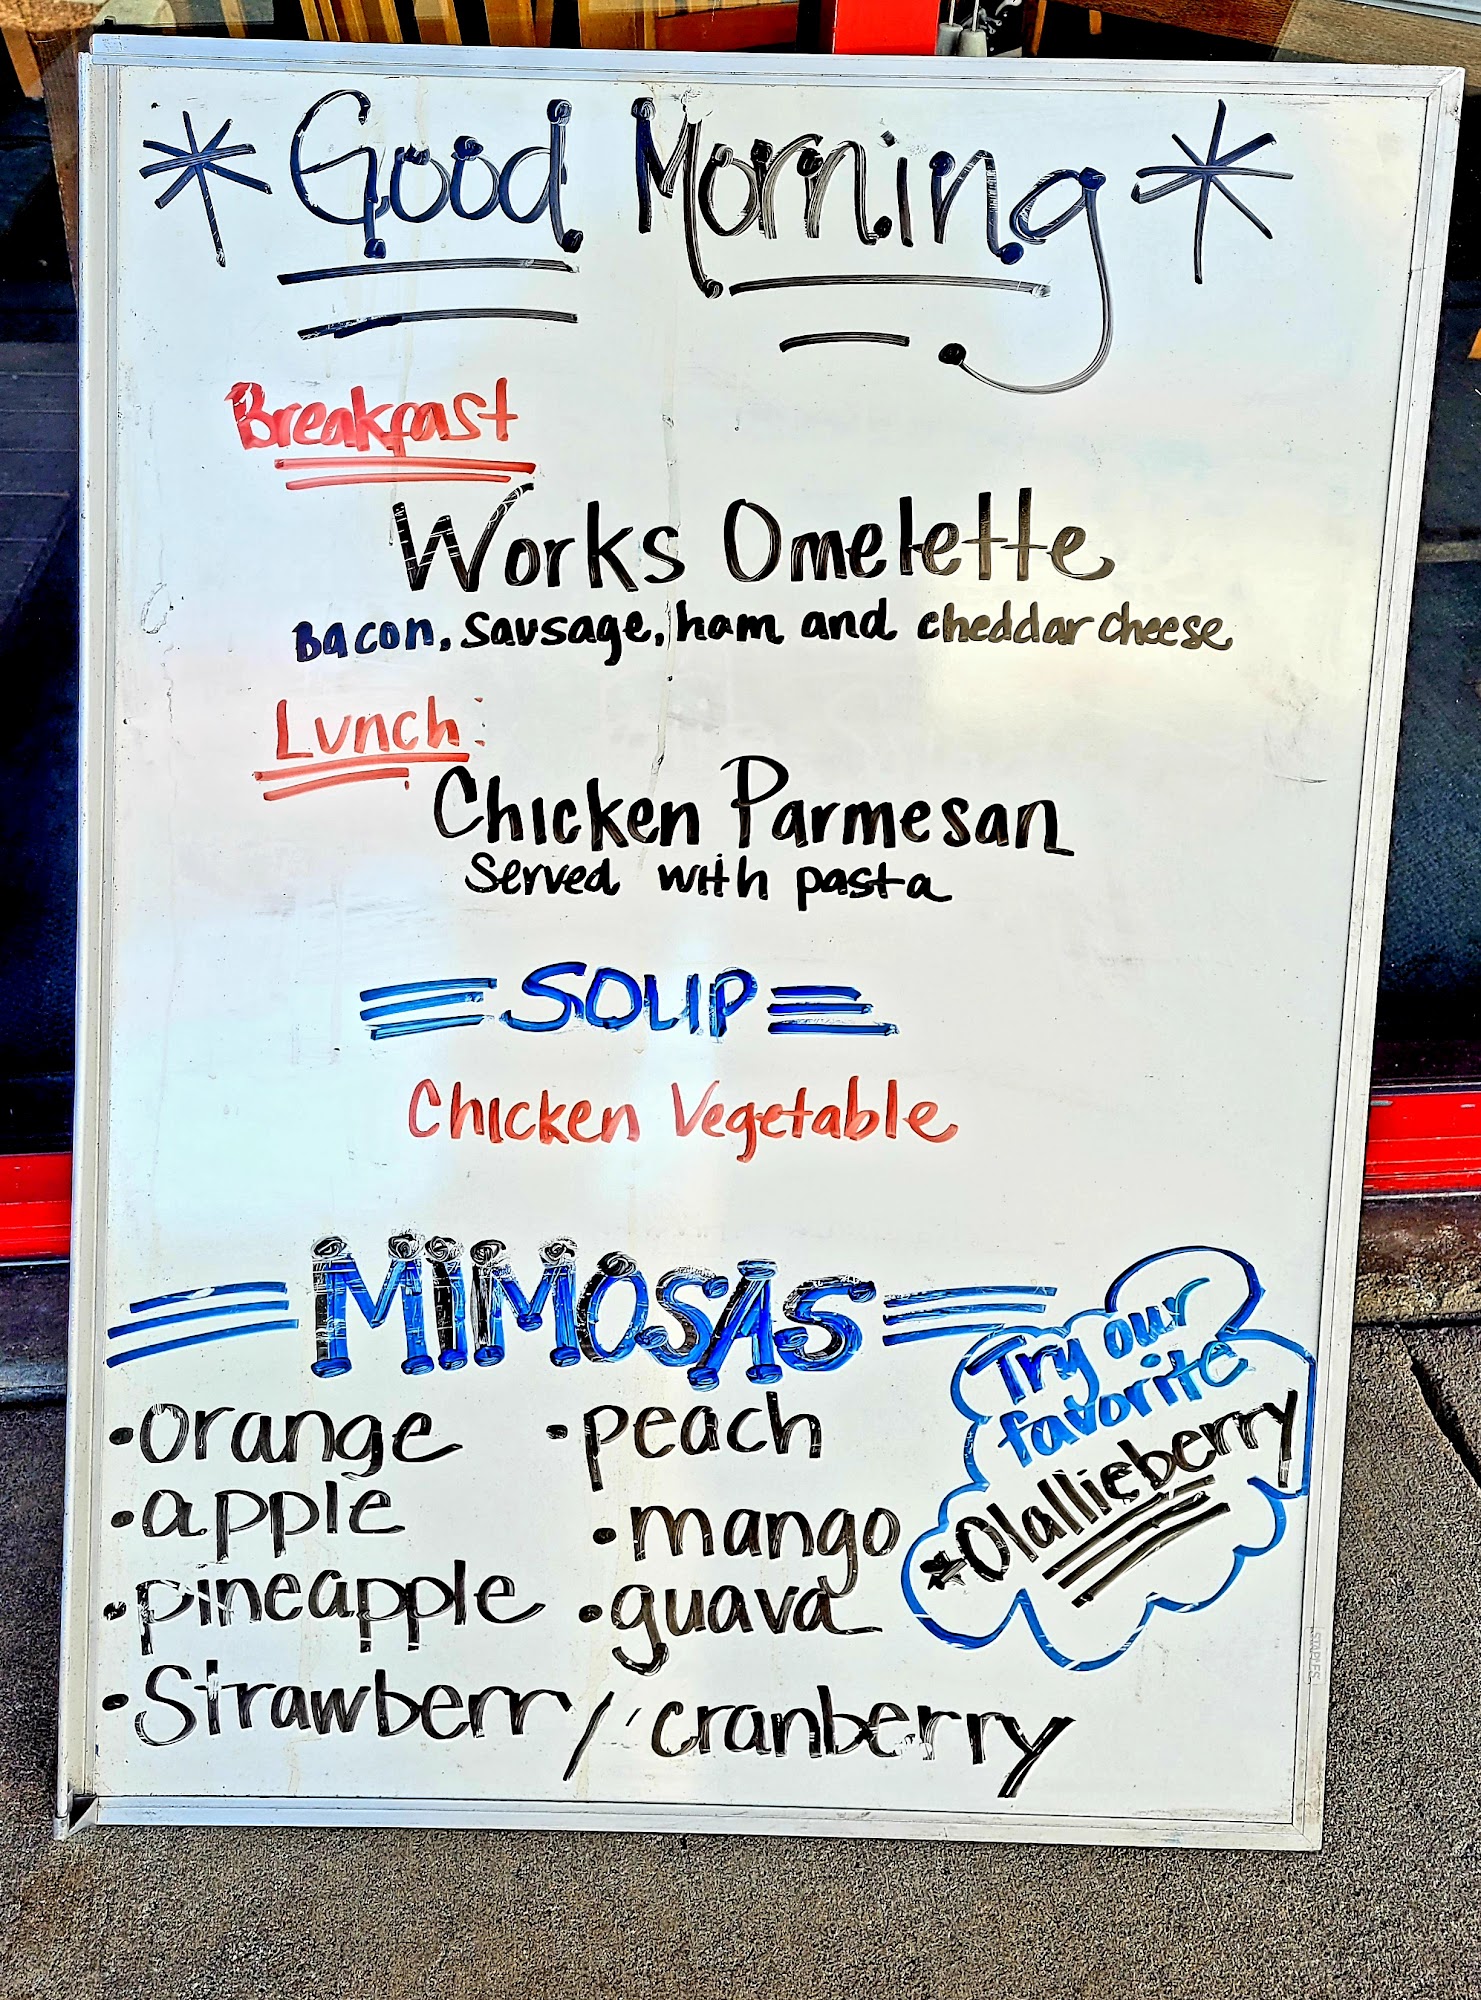 * Good Morning *
Breakfast
Works Omelette
Bacon, Sausage, ham and cheddar cheese
Lunch:
Chicken Parmesan
Served with pasta
SOUP
Chicken Vegetable
MIMOSAS
•orange
•apple
•pineapple
•peach
•mango
•guava
•Strawberry/cranberry
Try our
favorite
*Olallieberry
STAPLES